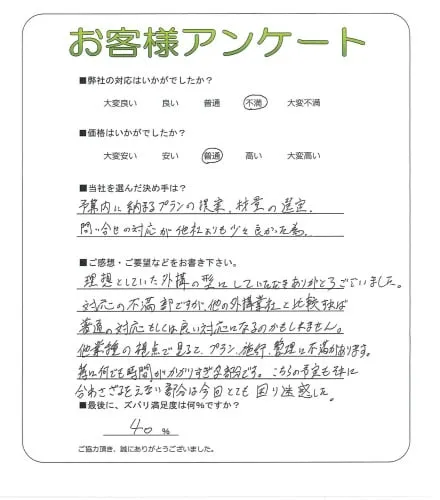 お客様アンケート
■弊社の対応はいかがでしたか？
大変良い 良い 普通 不満 大変不満
■価格はいかがでしたか？
大変安い 安い 普通 高い 大変高い
■当社を選んだ決め手は？
予算内に納まるプランの提案、材料の選定、
問い合せの対応が他社よりも少々良かった為
■ご感想・ご要望などをお書き下さい。
理想としていた外構の型にしていただきありがとうございました。
対応の不満部ですが、他の外構業社と比較すれば
普通の対応もしくは良い対応になるのかもしれません。
他業種の視点で見ると、プラン、施行、整理に不満があります。
特に何でも時間がかかりすぎる部分です。こちらの予定も
合わさざるをえない部分は今回とても困り迷惑した。
■最後に、ズバリ満足度は何％ですか？
40 ％
ご協力頂き、誠にありがとうございました。